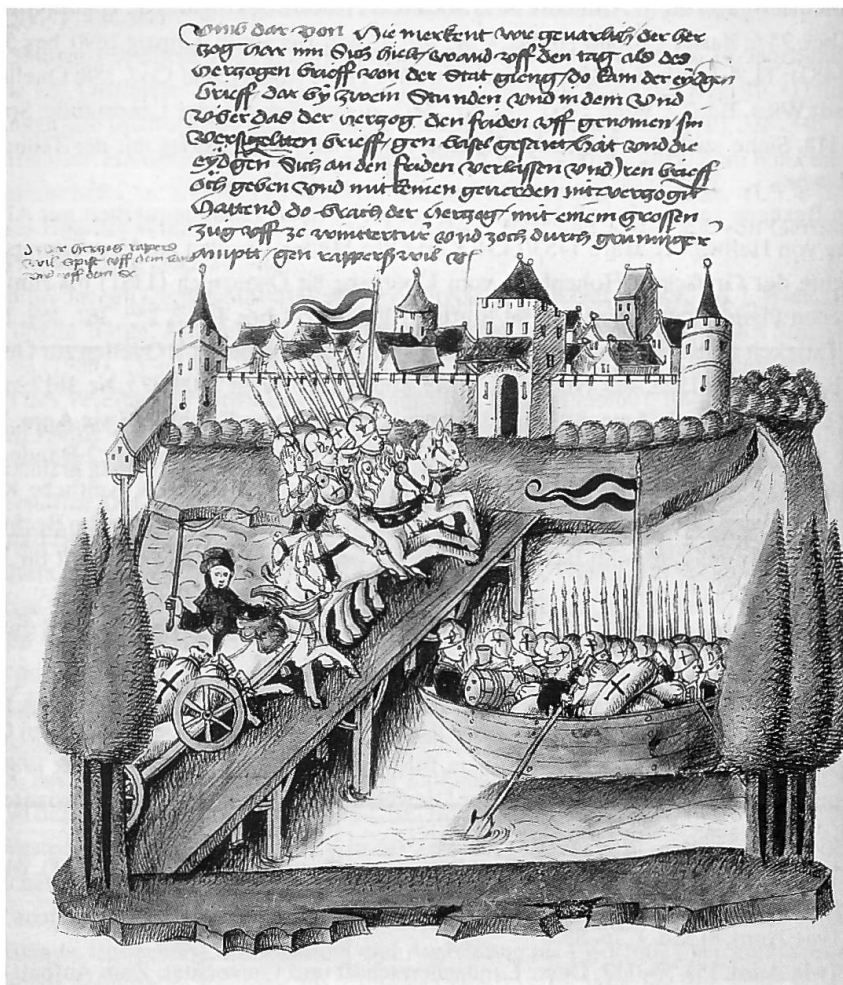 vmb dar von Hie merkent wie gevarlich der her
zog har inn Sich hielt / wand vff den tag als des
Hertzogen brieff von der Stat gieng / do kam der eydgen
brieff dar by zwein Stunden vnd in dem vnd
vber das der hertzog den friden vff genomen / sin
versigeltten brieff / gen basel gesant / hat vnd die
eydgen Sich an den friden verlassen vnd iren brieff
och geben vnd mit keinen geverden nit verzogen
Hattend do brach der hertzog / mit einem grossen
zug vff ze wintertur vnd zoch durch gruninger
amptt / gen rapperswil
der hertzog rapers
wil spist vff dem land
vnd vff dem Se